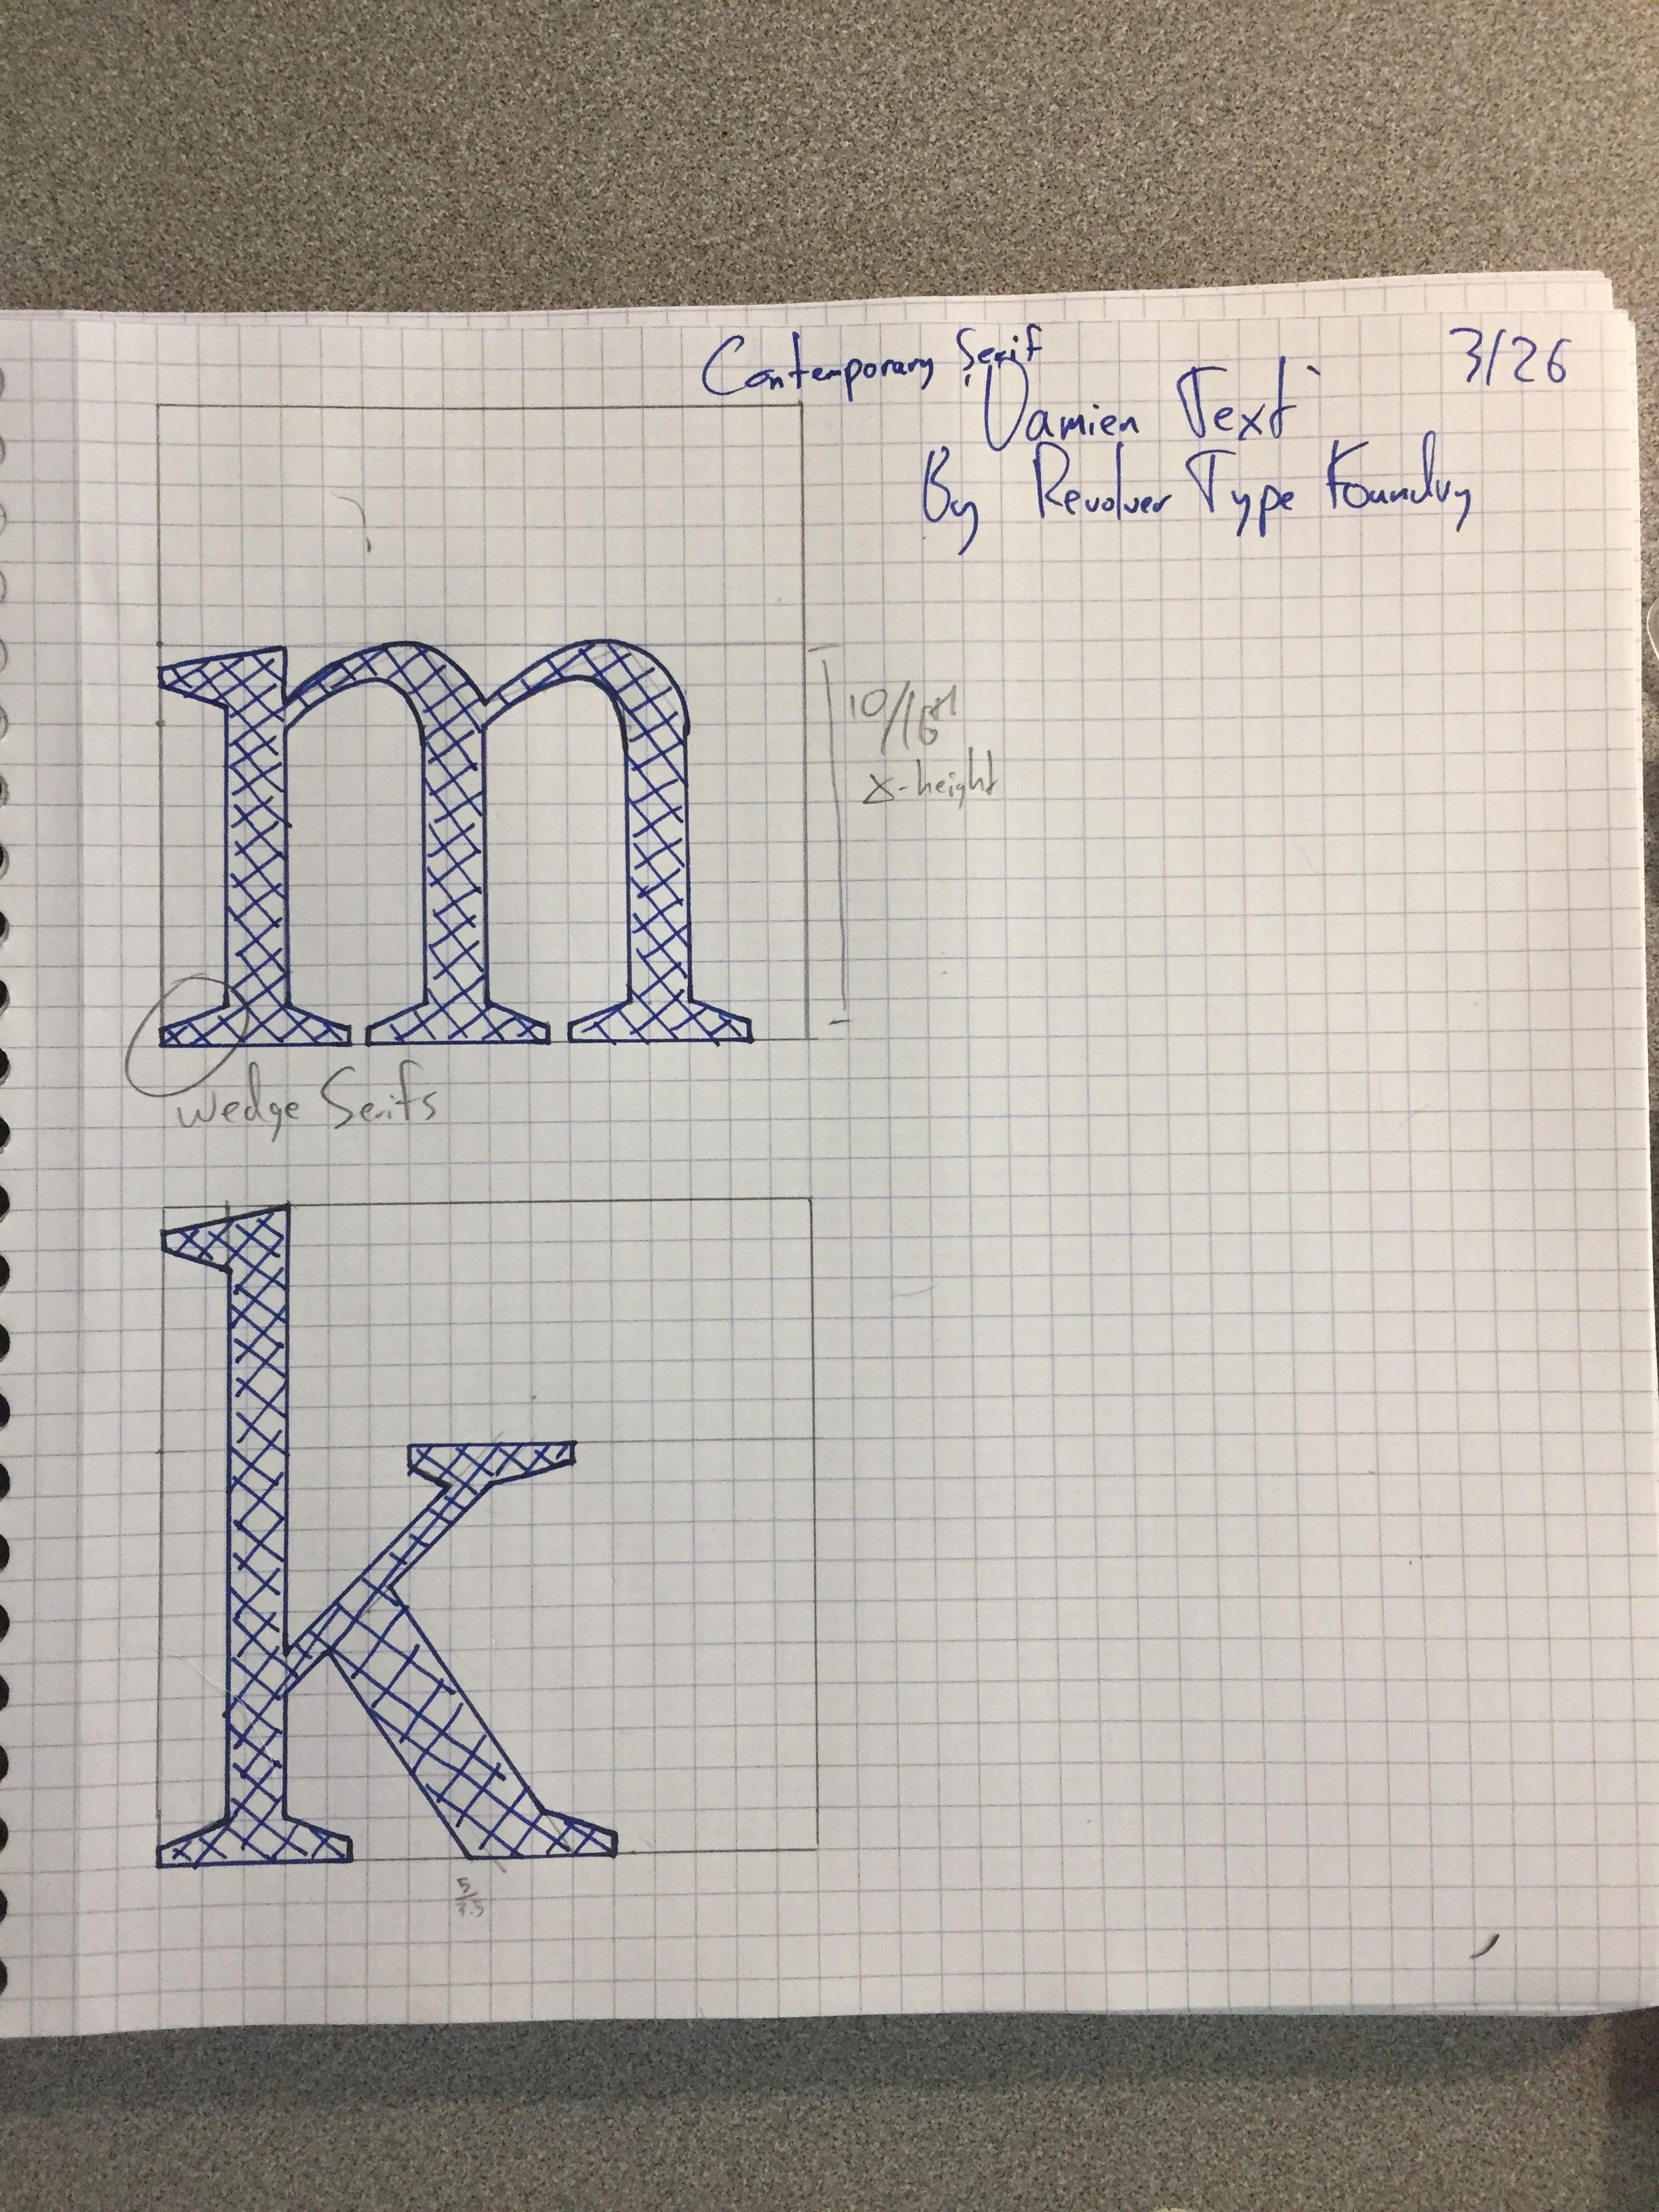 Contemporary Serif
3/26
Damien Text
By Revolver Type Foundry
m
10/16
x-height
wedge Serifs
k
5
7.5